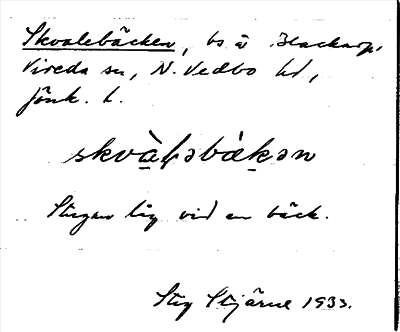 Skvalebäcken, bs å Hackarp,
Vireda sn, N. Vedbo hd,
Jönk. l.
skvàl̥əbàkən
Stugan låg vid en bäck.
Stig Stjärne 1933.